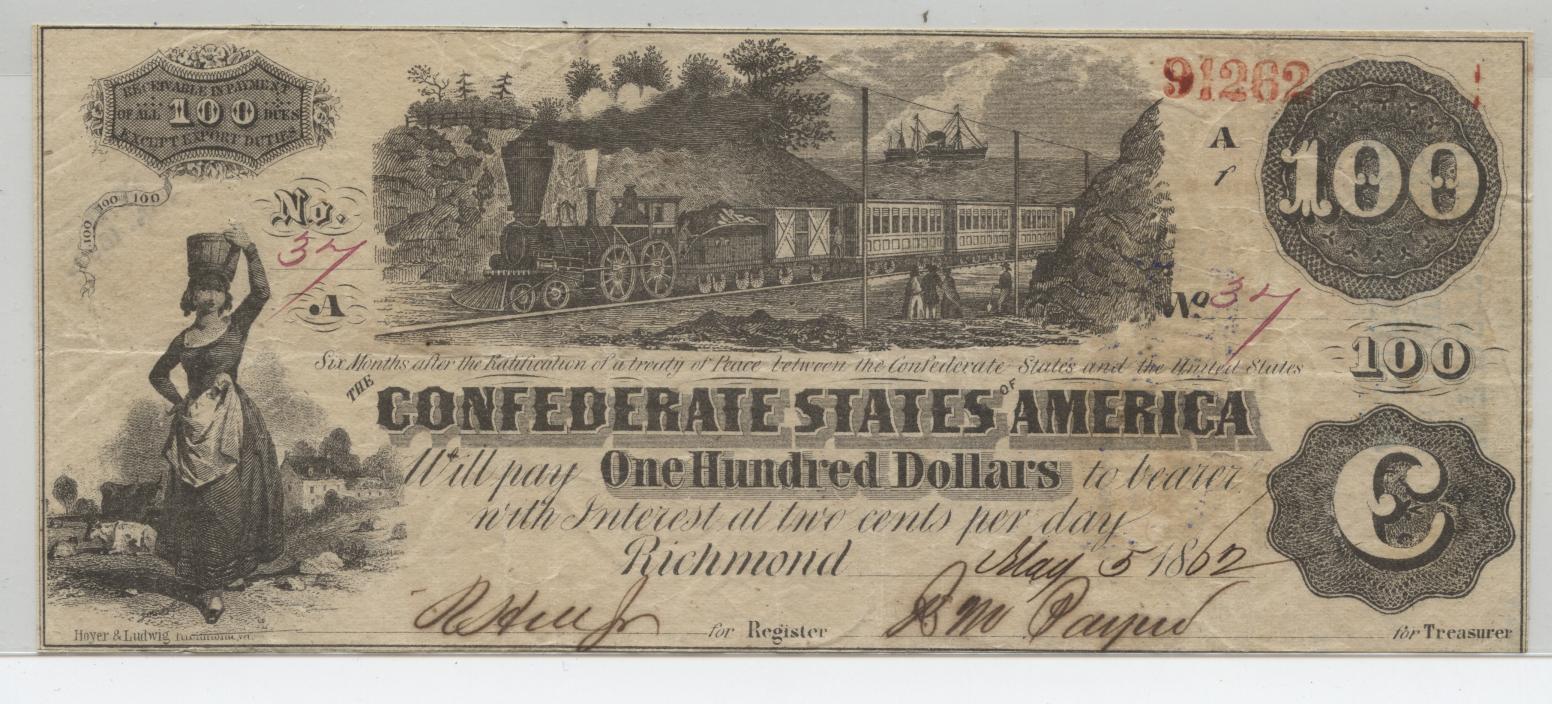 RECEIVABLE IN PAYMENT
OF ALL 100 DUES
EXCEPT EXPORT DUTIES
100 100 100
91262
A
1
100
No.
37
A
No 37
100
Six Months after the Ratification of a treaty of Peace between the Confederate States and the United States
THE CONFEDERATE STATES OF AMERICA
Will pay One Hundred Dollars to bearer
with Interest at two cents per day
Richmond May 5 1862
C
R Hill Jr for Register
for Treasurer
Hoyer & Ludwig Richmond, Va.